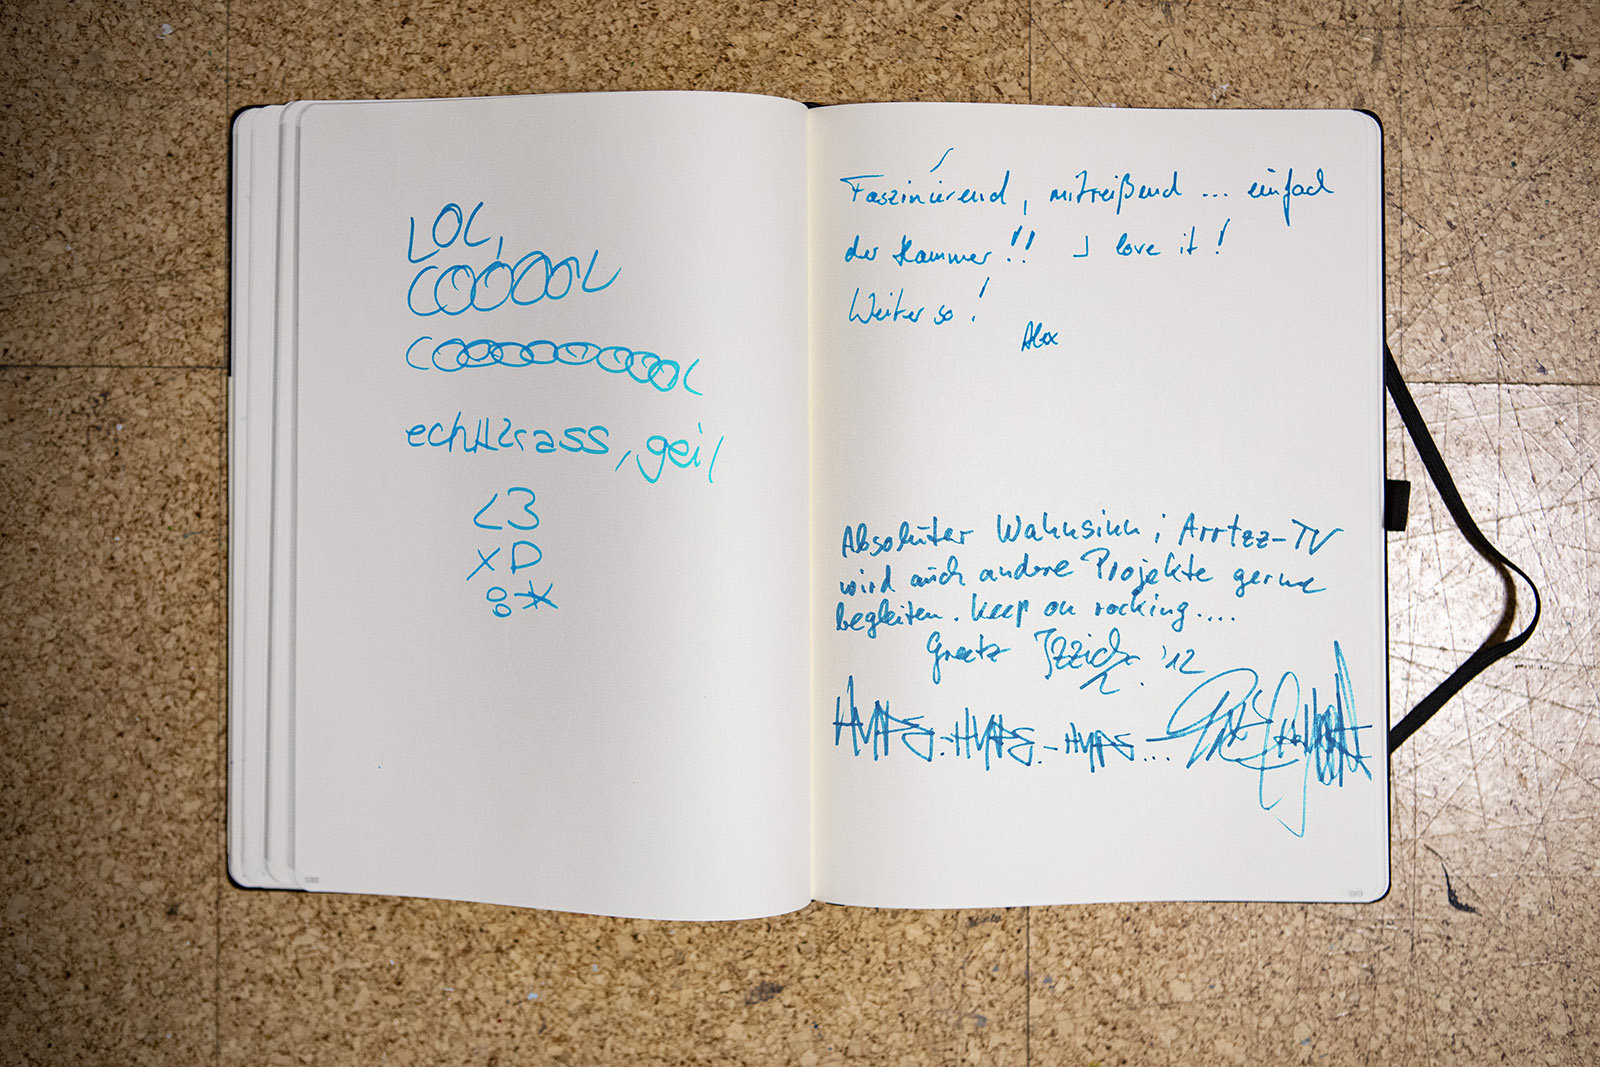 LOL,
COOOOOL
COOOOOOOOOL
echt krass, geil
<3
XD
:*
Faszinierend, mitreißend ... einfach
der Hammer!! I love it!
Weiter so!
Alex
Absoluter Wahnsinn; Arrtzz-TV
wird auch andere Projekte gerne
begleiten. Keep on rocking....
Greetz '12
HYPE.-HYPE.-HYPE...